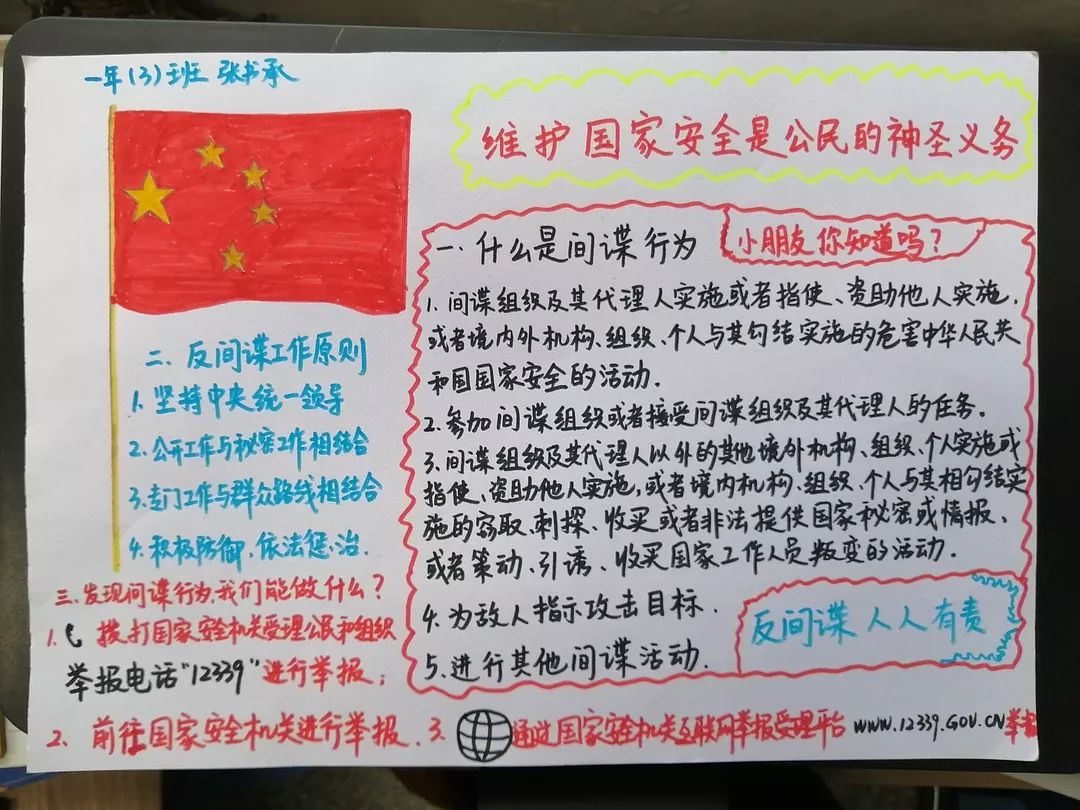 一年(3)班 张书承
维护国家安全是公民的神圣义务
一.什么是间谍行为
小朋友你知道吗?
1.间谍组织及其代理人实施或者指使、资助他人实施,
或者境内外机构、组织、个人与其勾结实施的危害中华人民共
和国国家安全的活动.
2.参加间谍组织或者接受间谍组织及其代理人的任务。
3.间谍组织及其代理人以外的其他境外机构、组织、个人实施或
指使、资助他人实施,或者境内机构、组织、个人与其相勾结实
施的窃取、刺探、收买或者非法提供国家秘密或情报、
或者策动、引诱、收买国家工作人员叛变的活动.
4.为敌人指示攻击目标.
5.进行其他间谍活动.
反间谍 人人有责
二.反间谍工作原则
1.坚持中央统一领导
2.公开工作与秘密工作相结合
3.专门工作与群众路线相结合
4.积极防御、依法惩治.
三.发现间谍行为,我们能做什么?
1.拨打国家安全机关受理公民和组织
举报电话"12339"进行举报;
2.前往国家安全机关进行举报.3.通过国家安全机关互联网举报受理平台 WWW.12339.GOV.CN举报